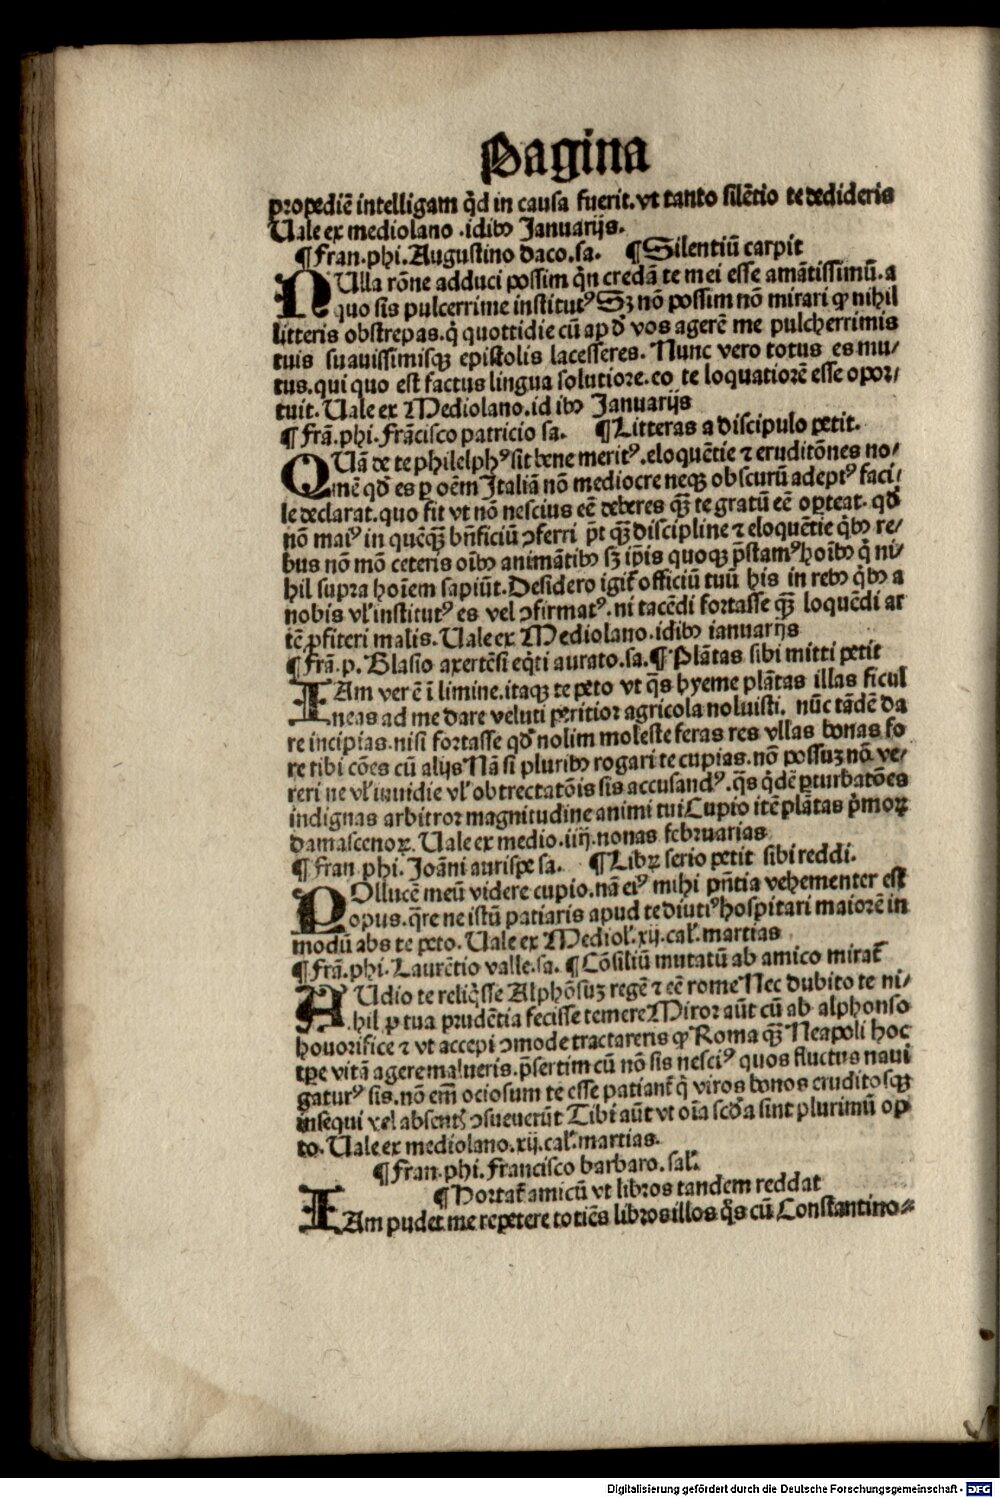 Pagina
propediē intelligam q̄d in causa fuerit. vt tanto silētio te dedideris
Uale ex mediolano .idibꝰ Januarijs.
¶ fran. phi. Augustino daco. sa. ¶ Silentiū carpit
NUlla rōne adduci possim q̄n credā te mei esse amātissimū. a
quo sis pulcerrime institutꝰ Sꝫ nō possim nō mirari ꝙ nihil
litteris obstrepas. q̄ quottidie cū apđ vos agerē me pulcherrimis
tuis suauissimisqꝫ epistolis lacesseres. Nunc vero totus es mu/
tus. qui quo est factus lingua solutiore. eo te loquatiorē esse opor/
tuit. Uale ex Mediolano. id ibꝰ Januarijs
¶ frā. phi. frācisco patricio sa. ¶ Litteras a discipulo petit.
QUā de te philelphꝰ sit bene meritꝰ. eloquētie ⁊ eruditōnes no/
mē qđ es ꝑ oēm Italiā nō mediocre neqꝫ obscurū adeptꝰ faci/
le declarat. quo fit vt nō nescius eē deberes qꝫ̄ te gratū eē oꝑteat. qđ
nō maiꝰ in quēqꝫ̄ bn̄ficiū ꝯferri p̄t qꝫ̄ discipline ⁊ eloquētie q̄bꝰ re/
bus nō mō ceteris oībꝰ animātibꝰ sꝫ ip̄is quoqꝫ p̄stamꝰ hoībꝰ q̄ ni/
hil supra hoīem sapiūt. Desidero igit̄ officiū tuū his in rebꝰ q̄bꝰ a
nobis vl̓ institutꝰ es vel ꝯfirmatꝰ. ni tacēdi fortasse qꝫ̄ loquēdi ar
tē ꝓfiteri malis. Uale ex Mediolano. idibꝰ ianuarijs
¶ frā. p. Blasio axertēsi eq̄ti aurato. sa. ¶ Plātas sibi mitti petit
IAm ver ē ī limine. itaqꝫ te peto vt q̄s hyeme plātas illas ficul
neas ad me dare veluti peritior agricola noluisti. nūc tādē da
re incipias. nisi fortasse qđ nolim moleste feras res vllas bonas fo
re tibi cōes cū alijs Nā si pluribꝰ rogari te cupias. nō possuꝫ nō ve/
reri ne vl̓ inuidie vl̓ obtrectatōis sis accusandꝰ. q̄s q̄dē ꝑturbatōes
indignas arbitror magnitudine animi tui Cupio itē plātas p̄moꝝ
damascenoꝝ. Uale ex medio. iiij. nonas februarias
¶ fran phi. Joāni aurispe sa. ¶ Libꝝ serio petit sibi reddi.
POllucē meū videre cupio. nā eiꝰ mihi pn̄tia vehementer est
opus. q̄re ne istū patiaris apud te diutiꝰ hospitari maiorē in
modū abs te peto. Uale ex Mediol̓. xij. cal̓. martias
¶ frā. phi. Laurētio valle. sa. ¶ Cōsiliū mutatū ab amico mirat̄
AUdio te reliq̄sse Alphōsuꝫ regē ⁊ eē rome Nec dubito te ni/
hil ꝓ tua prudētia fecisse temere Miror aūt cū ab alphonso
honorifice ⁊ vt accepi ꝯmode tractareris ꝙ Roma qꝫ̄ Neapoli hoc
tꝑe vitā agere malueris. p̄sertim cū nō sis nesciꝰ quos fluctus naui
gaturꝰ sis. nō em̄ ociosum te esse patiant̄ q̄ viros bonos eruditosqꝫ
insequi vel absentꝭ ꝯsueuerūt Tibi aūt vt oīa scđa sint plurimū op
to. Uale ex mediolano. xij. cal̓. martias.
¶ fran. phi. francisco barbaro. sal̓.
¶ Hortat̄ amicū vt libros tandem reddat
IAm pudet me repetere totiēs libros illos q̄s cū Constantino⸗
Digitalisierung gefördert durch die Deutsche Forschungsgemeinschaft - DFG